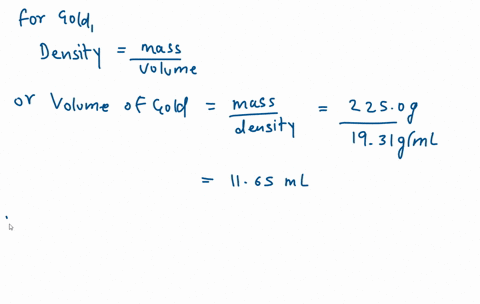 For Gold,
Density = mass / volume
or Volume of Gold = mass / density = 225.0g / 19.31g/mL
= 11.65 mL